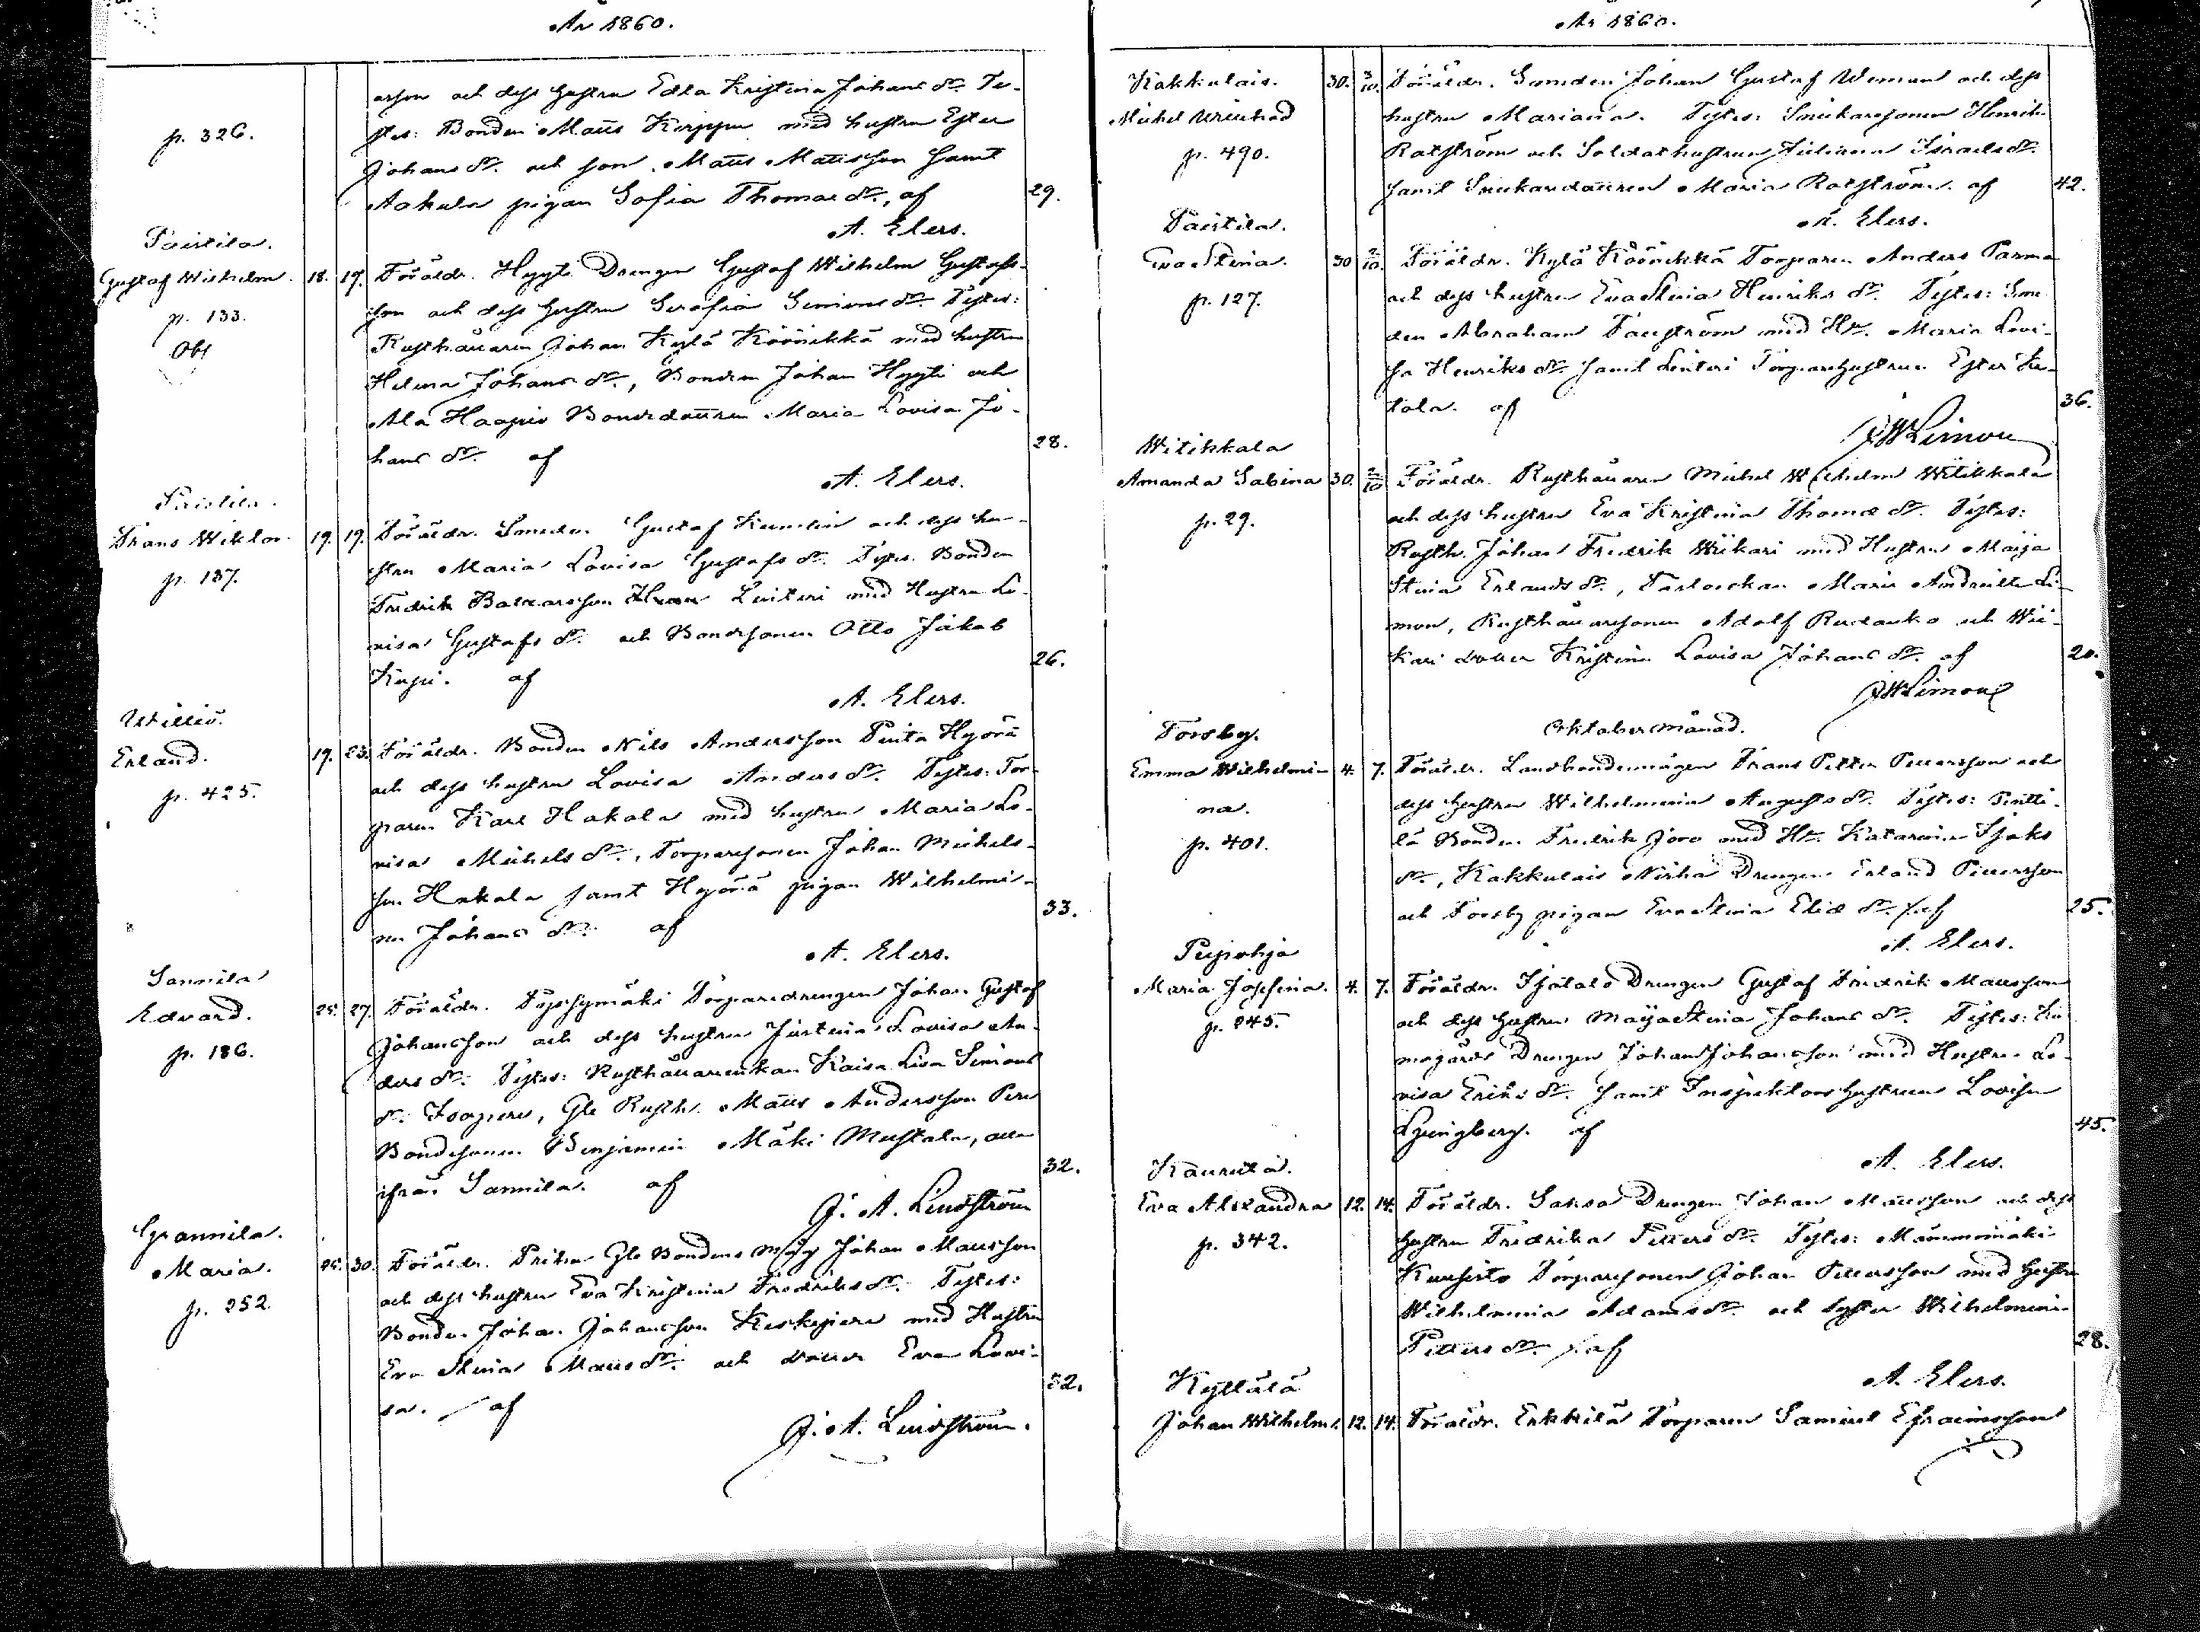 År 1860.
p. 326.
arson och dess hustru Edla Kristina Johans dr. Te-
stes: Bonden Matts Kirppu med hustru Ester
Johans dr. och son Matts Mattsson samt
Aakula pigan Sofia Thomas dr., af 29.
A. Elers.
Paistila.
Gustaf Wilhelm. 18. 19. Föräldr. Hyyti Drengen Gustaf Wilhelm Gustafs-
p. 133.
son och dess hustru Serafia Simons dr. Testes:
Obs
Rusthållaren Johan Kylä Köönikkä med hustru
Helena Johans dr., Bonden Johan Hyyti och
Ala Haapio Bondedottren Maria Lovisa Jo-
hans dr. af 28.
A. Elers.
Paistila.
Frans Wiktor. 19. 19. Föräldr. Smeden Gustaf Kumlin och dess hu-
stru Maria Lovisa Gustafs dr. Testes. Bonden
p. 137.
Fredrik Baltzarsson Linteri med Hustru Lo-
visa Gustafs dr. och Bondesonen Otto Jakob
af 26.
A. Elers.
Willio.
Erland. 19. 23. Föräldr. Bonden Nils Andersson Hyörä
p. 425.
och dess hustru Lovisa Anders dr. Testes: Tor-
paren Karl Hakala med hustru Maria Lo-
visa Michels dr., Torparesonen Johan Michels-
son Hakala samt Hyörä pigan Wilhelmi-
na Johans dr. af 33.
A. Elers.
Sannila
Edvard. 25. 27. Föräldr. Torparedrengen Johan Gustaf
Johansson och dess hustru Justina Lovisa An-
p. 186.
ders dr. Testes: Rusthållareenkan Kaisa Lisa Simons
dr. Isopere, Gle Rusth. Matts Andersson Pere
Bondesonen Benjamin Mäki Mustala, alla
ifrån Sannila. af 32.
J. A. Lindström
Grannila.
Maria. 25. 30. Föräldr. Priha Gle Bondens måg Johan Mattsson
och dess hustru Eva Kristina Fredriks dr. Testes:
p. 252.
Bonden Johan Johansson Keskipere med Hustru
Eva Stina Matts dr. och dotter Eva Lovi-
sa. af 32.
J. A. Lindström.
År 1860.
Kakkulais. 30. 3/10. Föräldr. Smeden Johan Gustaf Weman och dess
Michel Wrichad
hustru Mariana. Testes: Snickaresonen Henrik
p. 490.
Rotström och Soldathustrun Juliana Israels dr.
samt Snickardottren Maria Rotström. af 42.
A. Elers.
Paistila.
Eva Stina. 30 2/10. Föräldr. Kylä Köönikkä Torparen Anders Parma
p. 127.
och dess hustru Eva Stina Henriks dr. Testes: Sme-
den Abraham med Hu. Maria Lovi-
sa Henriks dr. samt Linteri Torparehustrun Ester Ku-
tola. af 36.
Limon
Witikkala
Amanda Sabina 30. 2/10 Föräldr. Rusthållaren Michel Wilhelm Witikkala
p. 29.
och dess hustru Eva Kristina Thomas dr. Testes:
Rusth. Johan Fredrik Wiikari med Hustru Maija
Stina Erlands dr., Maria Li-
mon, Rusthållaresonen Adolf Rudanko och Wii-
kari dotter Kristina Lovisa Johans dr. af 20.
Limon
Oktober månad.
Forsby.
Emma Wilhelmi- 4. 7. Föräldr. Landbondemågen Frans Petter Pettersson och
na.
dess hustru Wilhelmina Augusts dr. Testes: Pentti-
lä Bonden Fredrik Jovo med Hu. Katarina Isaks
p. 401.
dr., Kakkulais Nirha Drengen Erland Pettersson
och Forsby pigan Eva Stina Elias dr. af 25.
A. Elers.
Pispohja
Maria Josefina. 4. 7. Föräldr. Isotalo Drengen Gustaf Fredrik Mattsson
p. 245.
och dess hustru Maija Stina Johans dr. Testes: Ku-
mogårds Drengen Johan Johansson med Hustru Lo-
visa Eriks dr. samt Inspektors hustrun Lovisa
Ljungberg. af 45.
A. Elers.
Kaurula.
Eva Alexandra 12. 14. Föräldr. Saksa Drengen Johan Mattsson och dess
p. 342.
hustru Fredrika Petters dr. Testes: Mämmimäki
Kuusisto Torparesonen Johan Pettersson med hustru
Wilhelmina Adams dr. och syster Wilhelmina
Petters dr. af 28.
A. Elers.
Kyttälä
Johan Wilhelm. 12. 14. Föräldr. Erkkilä Torparen Samuel Efraimsson